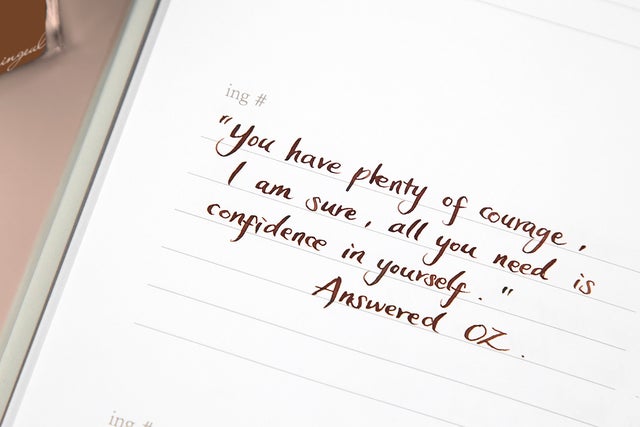 ingeul
ing #
"You have plenty of courage,
I am sure, all you need is
confidence in yourself."
Answered OZ.
ing #